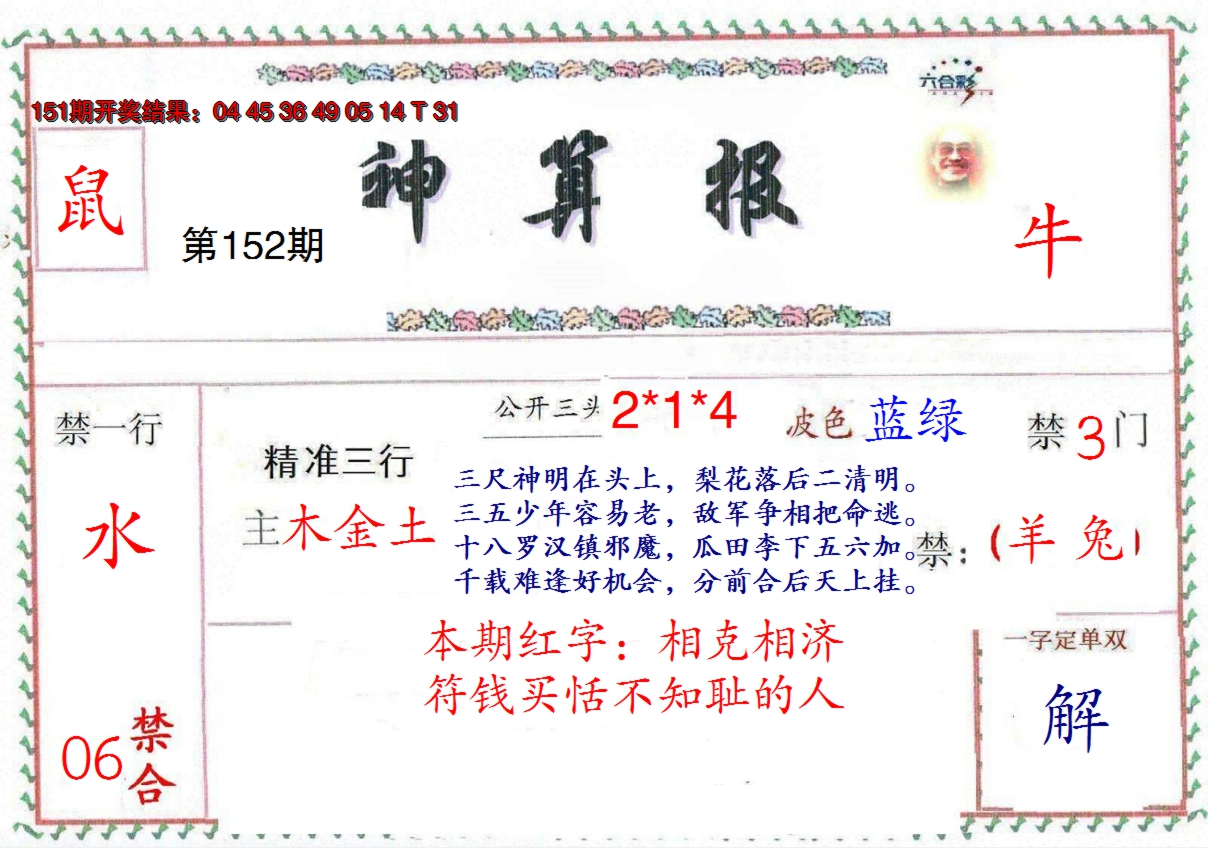 六合彩
151期开奖结果：04 45 36 49 05 14 T 31
神算报
鼠
第152期
牛
禁一行
水
06
禁合
公开三头 2*1*4
波色 蓝绿
禁3门
精准三行
主木金土
三尺神明在头上，梨花落后二清明。
三五少年容易老，敌军争相把命逃。
十八罗汉镇邪魔，瓜田李下五六加。
千载难逢好机会，分前合后天上挂。
禁：（羊 兔）
本期红字：相克相济
符钱买恬不知耻的人
一字定单双
解